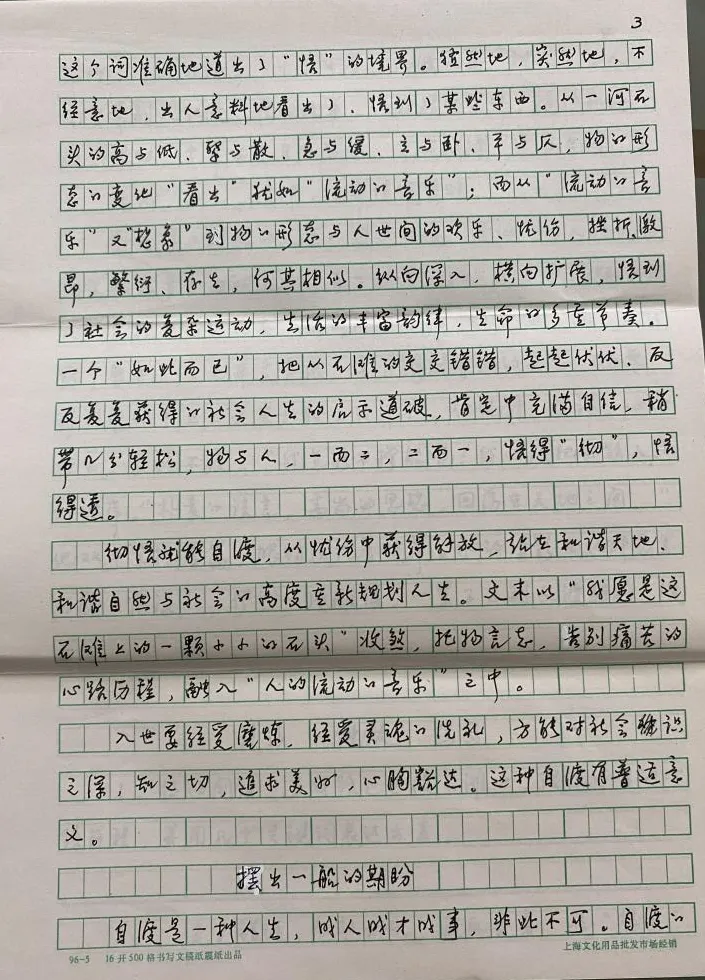 3
这个词准确地道出了“悟”的境界。猛然地，突然地，不
经意地，出人意料地看出了、悟到了某些东西。从一河石
头的高与低、聚与散、急与缓、立与卧、平与仄，物的形
态的变化“看出”犹如“流动的音乐”；而从“流动的音
乐”又“想象”到物的形态与人世间的欢乐、忧伤，挫折、激
昂，繁衍、存在，何其相似。纵向深入，横向扩展，悟到
了社会的复杂运动，生活的丰富韵律，生命的多重节奏。
一个“如此而已”，把从石滩的交交错错，起起伏伏、反
反复复获得的社会人生的启示道破，肯定中充满自信，稍
带几分轻松，物与人，一而二，二而一，悟得“彻”，悟
得透。
彻悟就能自渡，从忧伤中获得解放，站在和谐天地、
和谐自然与社会的高度重新规划人生。文末以“我愿是这
石滩上的一颗小小的石头”收煞，托物言志，告别痛苦的
心路历程，融入“人的流动的音乐”之中。
入世要经受磨炼，经受灵魂的洗礼，方能对社会识
之深，知之切，追求美好，心胸豁达。这种自渡有普适意
义。
摆出一船的期盼
自渡是一种人生，成人成才成事，非此不可。自渡的
96-5 16开500格书写文稿纸震纸出品
上海文化用品批发市场经销